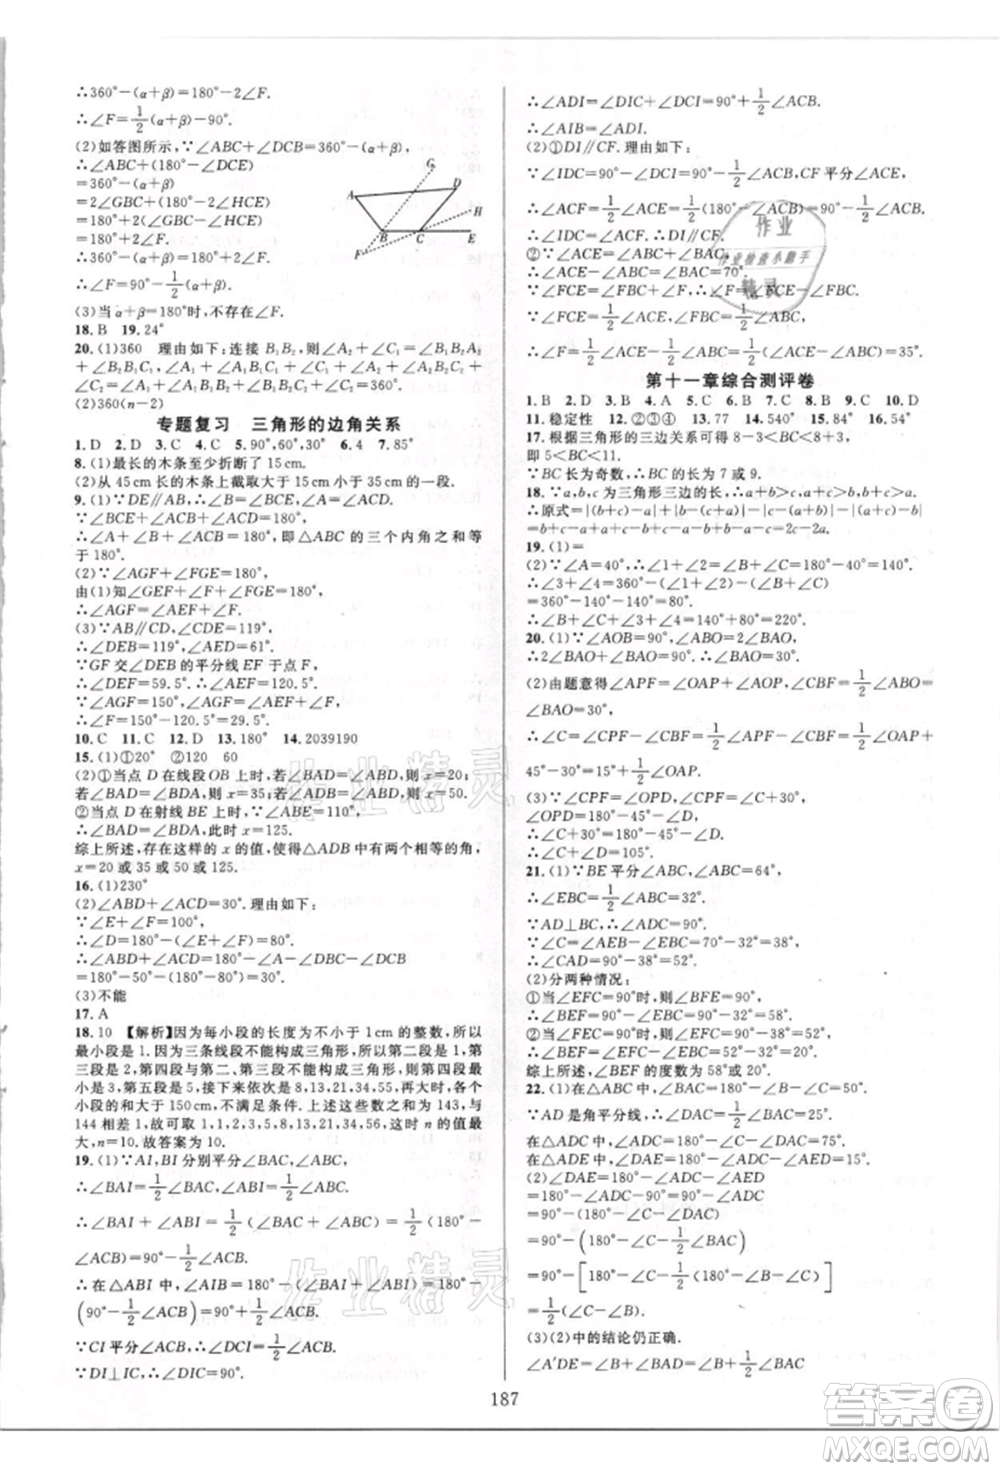 ∴360°−(α+β)=180°−2∠F.
∴∠F=1/2(α+β)−90°.
(2)如答图所示，∵∠ABC+∠DCB=360°−(α+β),
∴∠ABC+(180°−∠DCE)
=360°−(α+β)
=2∠GBC+(180°−2∠HCE)
=180°+2(∠GBC−∠HCE)
=180°−2∠F.
∴360°−(α+β)=180°−2∠F.
∴∠F=90°−1/2(α+β).
(3)当α+β=180°时,不存在∠F.
G
A D
H
B C E
F
18.B 19.24°
20.(1)360 理由如下:连接B₁B₂,则∠A₂+∠C₁=∠B₁B₂A₂
(2)360(n−2)
专题复习 三角形的边角关系
1.D 2.D 3.C 4.C 5.90°,60°,30° 6.4 7.85°
8.(1)最长的木条至少折断了15cm.
(2)从45cm长的木条上截取大于15cm小于35cm的一段.
9.(1)∵DE∥AF,∴∠B=∠BCE,∠A=∠ACD.
∵∠BCE+∠ACB+∠ACD=180°,
∴∠A+∠ACB+∠B=180°,即△ABC的三个内角之和等
于180°.
(2)∵∠AGF+∠FGE=180°,
由(1)知∠GEF+∠F+∠FGE=180°,
∴∠AGF=∠AEF+∠F.
(3)∵AB∥CD,∠CDE=119°,
∴∠DEB=119°,∠AED=61°.
∵GF交∠DEB的平分线EF于点F,
∴∠DEF=59.5°.∴∠AEF=120.5°.
∵∠AGF=150°,∠AGF=∠AEF+∠F,
∴∠F=150°−120.5°=29.5°.
10.C 11.C 12.D 13.180° 14.2039190
15.(1)①20° ②120 60
(2)①当点D在线段OB上时,若∠BAD=∠ABD,则x=20;
若∠BAD=∠BDA,则x=35;若∠ADB=∠ABD,则x=50.
②当点D在射线BE上时,∵∠ABE=110°,
∴∠BAD=∠BDA,此时x=125.
综上所述,存在这样的x的值,使得△ADB中有两个相等的角,
x=20或35或50或125.
16.(1)230°
(2)∠ABD+∠ACD=30°.理由如下:
∵∠E+∠F=100°,
∴∠D=180°−(∠E+∠F)=80°.
∴∠ABD+∠ACD=180°−∠A−∠DBC−∠DCB
=180°−50°−(180°−80°)=30°.
(3)不能
17.A
18.10 【解析】因为每小段的长度为不小于1cm的整数,所以第
一段是1.因为三条线段不能构成三角形,所以第二段是1,第
三段是2,第四段与第二、第三段不能构成三角形,则第四段最
小是3,第五段是5,依次是8,13,21,34,55,再大时,各
个小段的和大于150cm,不满足条件.上述这些数之和为143,与
144相差1,故可取1,1,2,3,5,8,13,21,34,56,这时n的值最
大,n=10.故答案为10.
19.(1)∵AI,BI分别平分∠BAC,∠ABC,
∴∠BAI=1/2∠BAC,∠ABI=1/2∠ABC.
∴∠BAI+∠ABI=1/2(∠BAC+∠ABC)=1/2(180°−
∠ACB)=90°−1/2∠ACB.
∴在△ABI中,∠AIB=180°−(∠BAI+∠ABI)=180°−
(90°−1/2∠ACB)=90°+1/2∠ACB.
∵CI平分∠ACB,∴∠DCI=1/2∠ACB.
∵DI⊥IC,∴∠DIC=90°.
∴∠ADI=∠DIC+∠DCI=90°+1/2∠ACB.
∴∠AIB=∠ADI.
(2)①DI∥CF.理由如下:
∵∠IDC=90°−∠DCI=90°−1/2∠ACB,CF平分∠ACE,
∴∠ACF=1/2∠ACE=1/2(180°−∠ACB)=90°−1/2∠ACB.
∴∠IDC=∠ACF.∴DI∥CF.
②∵∠ACE=∠ABC+∠BAC,
∴∠ACE−∠ABC=∠BAC=70°.
∵∠FCE=∠FBC+∠F,∴∠F=∠FCE−∠FBC.
∵∠FCE=1/2∠ACE,∠FBC=1/2∠ABC,
∴∠F=1/2∠ACE−1/2∠ABC=1/2(∠ACE−∠ABC)=35°.
第十一章综合测评卷
1.B 2.D 3.B 4.A 5.A 6.C 7.B 8.C 9.C 10.D
11.稳定性 12.②③④ 13.77 14.540° 15.84° 16.54°
17.根据三角形的三边关系可得8−3<BC<8+3,
即5<BC<11.
∵BC长为奇数,∴BC的长为7或9.
18.∵a,b,c为三角形三边的长,∴a+b>c,a+c>b,b+c>a.
∴原式=|(b+c)−a|+|b−(c+a)|+|c−(a+b)|
=b+c−a+a+c−b+a+b−c=2c−2a.
19.(1)=
(2)∵∠A=40°,∴∠1+∠2=∠B+∠C=180°−40°=140°.
∴∠3+∠4=360°−(∠1+∠2)−(∠B+∠C)
=360°−140°−140°=80°.
20.(1)∵∠AOB=90°,∴∠OAB+∠ABO=90°.
∴2∠BAO+∠BAO=90°.∴∠BAO=30°.
(2)由题意得∠APF=∠OAP+∠AOP,∠CBF=1/2∠ABO=
∠BAO=30°,
∴∠C=∠CPF−∠CBF=∠APF−∠CBF=1/2∠OAP+
45°−30°=15°+1/2∠OAP.
(3)∵∠CPF=∠OPD,∠CPF=∠C+30°,
∠OPD=180°−45°−∠D,
∴∠C+30°=180°−45°−∠D.
∴∠C+∠D=105°.
21.(1)∵BE平分∠ABC,∠ABC=64°,
∴∠EBC=1/2∠ABC=32°.
∵AD⊥BC,∴∠ADC=90°.
∵∠C=∠AEB−∠EBC=70°−32°=38°,
∴∠CAD=90°−38°=52°.
(2)分两种情况:
①当∠EFC=90°时,则∠BFE=90°,
∴∠BEF=90°−∠EBC=90°−32°=58°;
②当∠FEC=90°时,
∴∠BEF=180°−70°−90°=20°.
综上所述,∠BEF的度数为58°或20°.
(2)∠DAE=180°−∠ADE−∠AED
=180°−90°−∠ADC
=90°−(180°−∠C−∠DAC)
=90°−(180°−∠C−1/2∠BAC)
=90°−[180°−∠C−1/2(180°−∠B−∠C)]
=1/2(∠C−∠B).
(3)(2)中的结论仍正确.
187
作业精灵
作业精灵
作业
作业检查小助手
精灵
答案圈
MXQE.COM